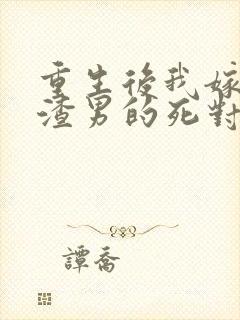 重生後我嫁
渣男的死對
譚喬